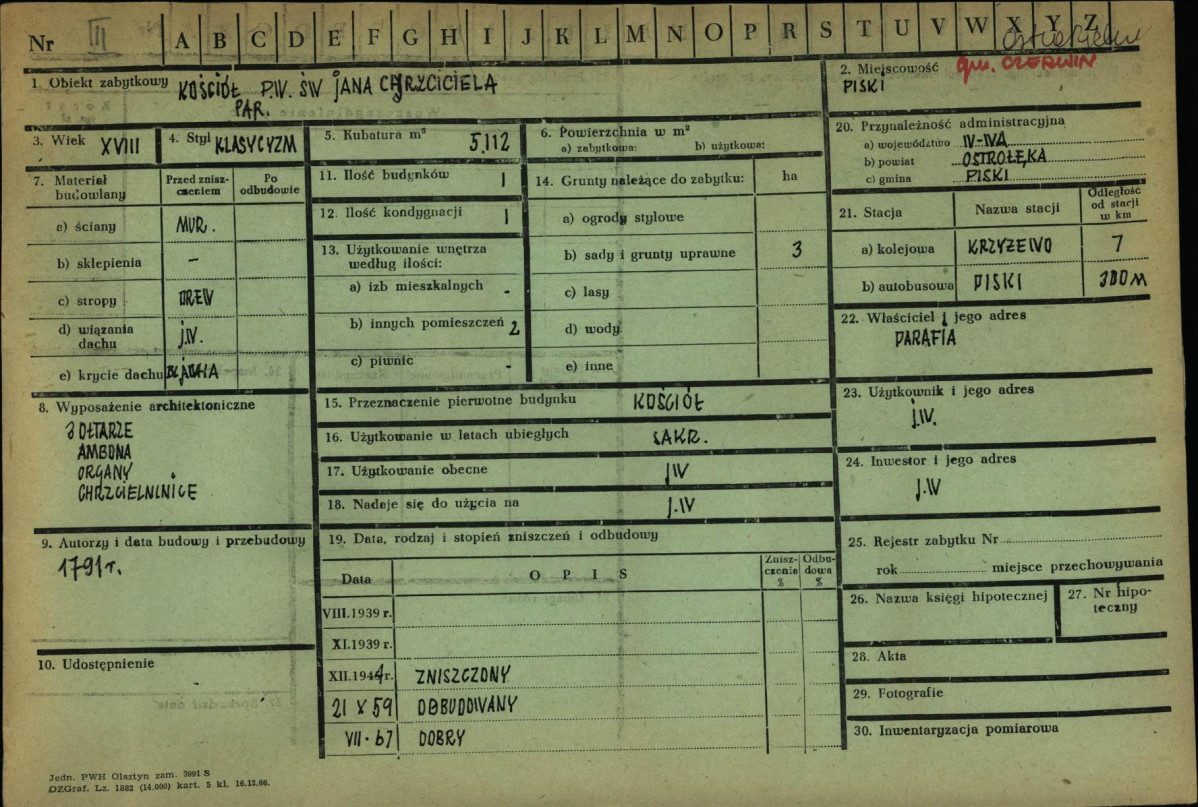 Nr III A B C D E F G H I J K L M N O P R S T U V W X Y Z
1. Obiekt zabytkowy KOŚCIÓŁ P.W. ŚW JANA CHRZCICIELA
PAR.
2. Miejscowość gm. CZERWIN
PISKI
3. Wiek XVIII
4. Styl KLASYCYZM
5. Kubatura m³ 5.112
6. Powierzchnia w m²
a) zabytkowa: b) użytkowa:
20. Przynależność administracyjna
a) województwo W-WA
b) powiat OSTROŁĘKA
c) gmina PISKI
7. Materiał budowlany
Przed znisz-
czeniem
Po
odbudowie
a) ściany MUR.
b) sklepienia –
c) stropy DREW
d) wiązania
dachu J.W.
e) krycie dachu BLACHA
11. Ilość budynków 1
12. Ilość kondygnacji 1
13. Użytkowanie wnętrza
według ilości:
a) izb mieszkalnych -
b) innych pomieszczeń 2
c) piwnic -
14. Grunty należące do zabytku: ha
a) ogrody stylowe
b) sady i grunty uprawne 3
c) lasy
d) wody
e) inne
21. Stacja Nazwa stacji Odległość
od stacji
w km
a) kolejowa KRZYŻEWO 7
b) autobusowa PISKI 300 M
22. Właściciel i jego adres
PARAFIA
8. Wyposażenie architektoniczne
3 OŁTARZE
AMBONA
ORGANY
CHRZCIELNNICE
15. Przeznaczenie pierwotne budynku KOŚCIÓŁ
16. Użytkowanie w latach ubiegłych SAKR.
17. Użytkowanie obecne J.W
18. Nadaje się do użycia na J.W
23. Użytkownik i jego adres
J.W.
24. Inwestor i jego adres
J.W
9. Autorzy i data budowy i przebudowy
1791 r.
10. Udostępnienie
19. Data, rodzaj i stopień zniszczeń i odbudowy
Data O P I S Znisz-
czenia
% Odbu-
dowa
%
VIII.1939 r.
XI.1939 r.
XII.1944 r. ZNISZCZONY
21 X 59 ODBUDOWANY
VII. 67 DOBRY
25. Rejestr zabytku Nr
rok miejsce przechowywania
26. Nazwa księgi hipotecznej
27. Nr hipo-
teczny
28. Akta
29. Fotografie
30. Inwentaryzacja pomiarowa
Jedn. PWH Olsztyn zam. 3991 S
OZGraf. Lz. 1882 (14.000) kart. 5 kl. 16.12.66.